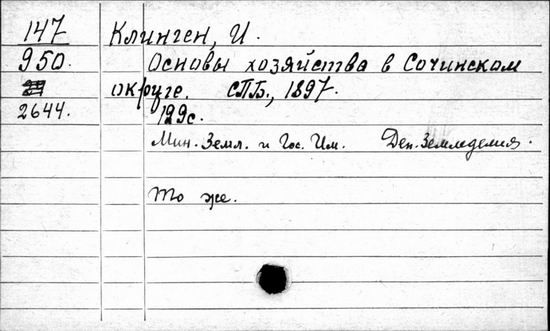 147 Клинген, И.
950. Основы хозяйства в Сочинском
округе. СПБ., 1897.
2644. 129с.
Мин. Земл. и Гос. Им. Деп. Земледелия.
То же.